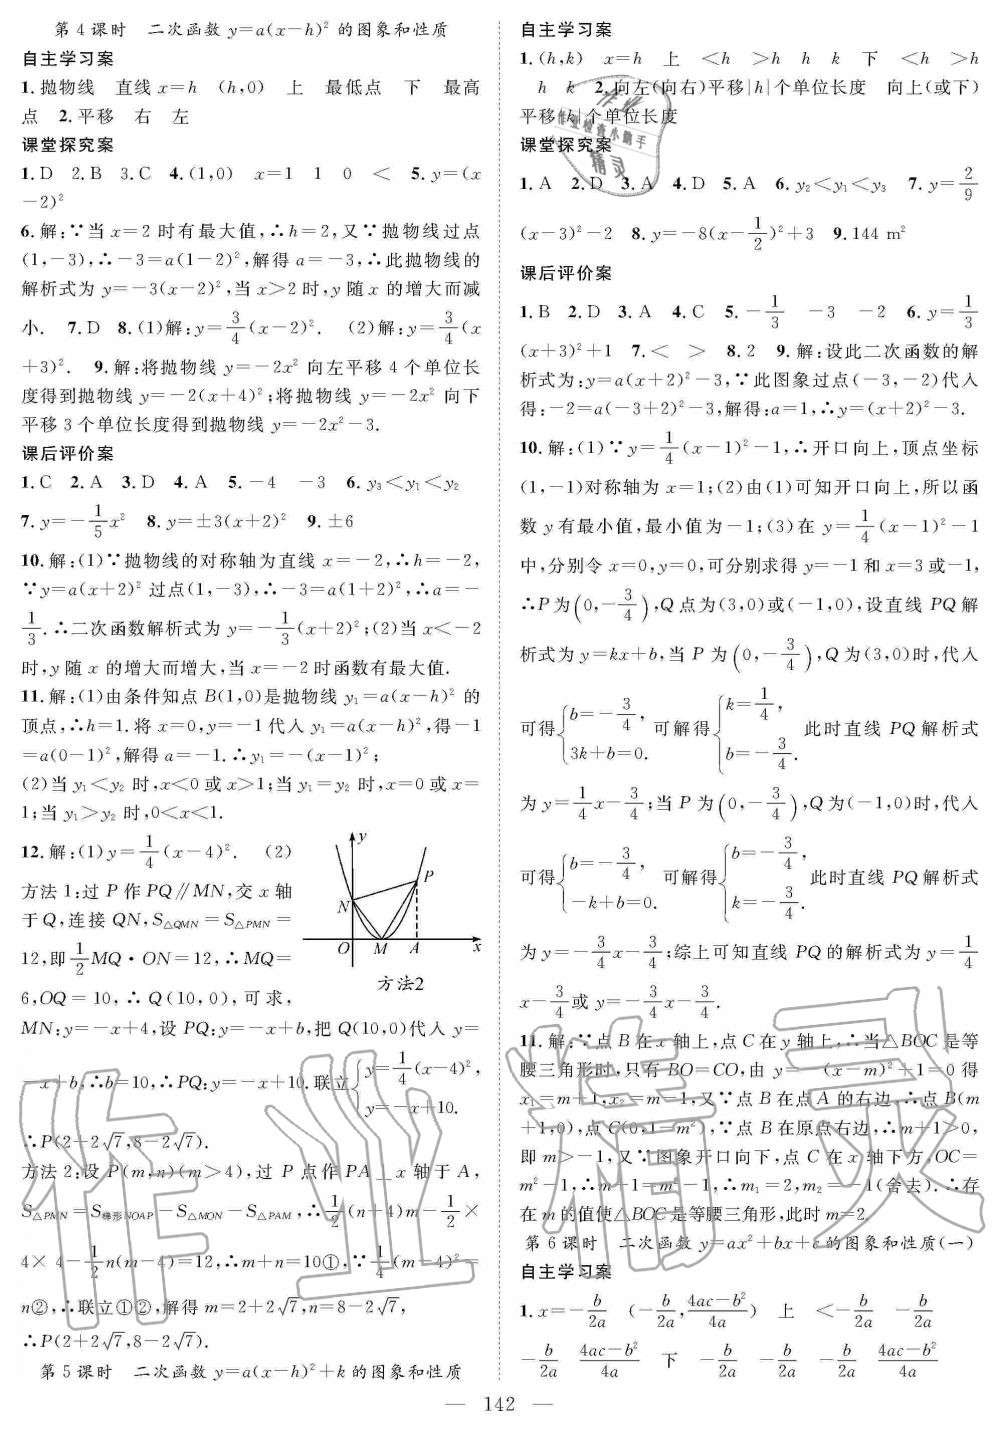 第4课时　二次函数 y=a(x-h)² 的图象和性质
自主学习案
1.抛物线　直线 x=h　(h,0)　上　最低点　下　最高
点　2.平移　右　左
课堂探究案
1.D　2.B　3.C　4.(1,0)　x=1　1　0　<　5.y=(x
-2)²
6.解:∵当 x=2 时有最大值,∴h=2,又∵抛物线过点
(1,-3),∴-3=a(1-2)²,解得 a=-3,∴此抛物线的
解析式为 y=-3(x-2)²,当 x>2 时,y 随 x 的增大而减
小.　7.D　8.(1)解:y=3/4(x-2)².　(2)解:y=3/4(x
+3)².　9.解:将抛物线 y=-2x² 向左平移 4 个单位长
度得到抛物线 y=-2(x+4)²;将抛物线 y=-2x² 向下
平移 3 个单位长度得到抛物线 y=-2x²-3.
课后评价案
1.C　2.A　3.D　4.A　5.-4　-3　6.y₃<y₁<y₂
7.y=-1/5x²　8.y=±3(x+2)²　9.±6
10.解:(1)∵抛物线的对称轴为直线 x=-2,∴h=-2,
∵y=a(x+2)² 过点(1,-3),∴-3=a(1+2)²,∴a=-
1/3.∴二次函数解析式为 y=-1/3(x+2)²;(2)当 x<-2
时,y 随 x 的增大而增大,当 x=-2 时函数有最大值.
11.解:(1)由条件知点 B(1,0)是抛物线 y₁=a(x-h)² 的
顶点,∴h=1.将 x=0,y=-1 代入 y₁=a(x-h)²,得-1
=a(0-1)²,解得 a=-1.∴y₁=-(x-1)²;
(2)当 y₁<y₂ 时,x<0 或 x>1;当 y₁=y₂ 时,x=0 或 x=
1;当 y₁>y₂ 时,0<x<1.
12.解:(1)y=1/4(x-4)².　(2)
方法 1:过 P 作 PQ∥MN,交 x 轴
于 Q,连接 QN,S△QMN=S△PMN=
12,即 1/2MQ·ON=12,∴MQ=
6,OQ=10,∴Q(10,0),可求,
y
P
N
O　M　A　x
方法2
MN:y=-x+4,设 PQ:y=-x+b,把 Q(10,0)代入 y=
-x+b,∴b=10,∴PQ:y=-x+10.联立{y=1/4(x-4)²,
y=-x+10.
∴P(2+2√7,8-2√7).
方法 2:设 P(m,n)(m>4),过 P 点作 PA⊥x 轴于 A,
S△PMN=S梯形NOAP-S△MON-S△PAM,∴1/2(n+4)m-1/2×
4×4-1/2n(m-4)=12,∴m+n=10①,∵1/4(m-4)²=
n②,∴联立①②,解得 m=2+2√7,n=8-2√7,
∴P(2+2√7,8-2√7).
第5课时　二次函数 y=a(x-h)²+k 的图象和性质
自主学习案
1.(h,k)　x=h　上　<h　>h　h　k　下　<h　>h
h　k　2.向左(向右)平移|h|个单位长度　向上(或下)
平移|k|个单位长度
课堂探究案
1.A　2.D　3.A　4.D　5.A　6.y₂<y₁<y₃　7.y=2/9
(x-3)²-2　8.y=-8(x-1/2)²+3　9.144 m²
课后评价案
1.B　2.D　3.A　4.C　5.-1/3　-3　-2　6.y=1/3
(x+3)²+1　7.<　>　8.2　9.解:设此二次函数的解
析式为:y=a(x+2)²-3,∵此图象过点(-3,-2)代入
得:-2=a(-3+2)²-3,解得:a=1,∴y=(x+2)²-3.
10.解:(1)∵y=1/4(x-1)²-1,∴开口向上,顶点坐标
(1,-1)对称轴为 x=1;(2)由(1)可知开口向上,所以函
数 y 有最小值,最小值为-1;(3)在 y=1/4(x-1)²-1
中,分别令 x=0,y=0,可分别求得 y=-1和 x=3或-1,
∴P为(0,-3/4),Q点为(3,0)或(-1,0),设直线 PQ 解
析式为 y=kx+b,当 P 为(0,-3/4),Q为(3,0)时,代入
可得{b=-3/4,
3k+b=0.
可解得{k=1/4,
b=-3/4.
此时直线 PQ 解析式
为 y=1/4x-3/4;当 P 为(0,-3/4),Q为(-1,0)时,代入
可得{b=-3/4,
-k+b=0.
可解得{b=-3/4,
k=-3/4.
此时直线 PQ 解析式
为 y=-3/4x-3/4;综上可知直线 PQ 的解析式为 y=1/4
x-3/4或 y=-3/4x-3/4.
11.解:∵点 B 在 x 轴上,点 C 在 y 轴上,∴当△BOC 是等
腰三角形时,只有 BO=CO,由 y=-(x-m)²+1=0 得
x₁=m+1,x₂=m-1,又∵点 B 在点 A 的右边,∴点 B(m
+1,0),点 C(0,1-m²),∵点 B 在原点右边,∴m+1>0,
即 m>-1,又∵图象开口向下,点 C 在 x 轴下方,OC=
m²-1,∴m+1=m²-1,∴m₁=2,m₂=-1(舍去).∴存
在 m 的值使△BOC是等腰三角形,此时 m=2.
第6课时　二次函数 y=ax²+bx+c的图象和性质(一)
自主学习案
1.x=-b/2a　(-b/2a,4ac-b²/4a)　上　<-b/2a　-b/2a
-b/2a　4ac-b²/4a　下　-b/2a　-b/2a　-b/2a　4ac-b²/4a
— 142 —
作业
作业检查小能手
精灵
作业精灵